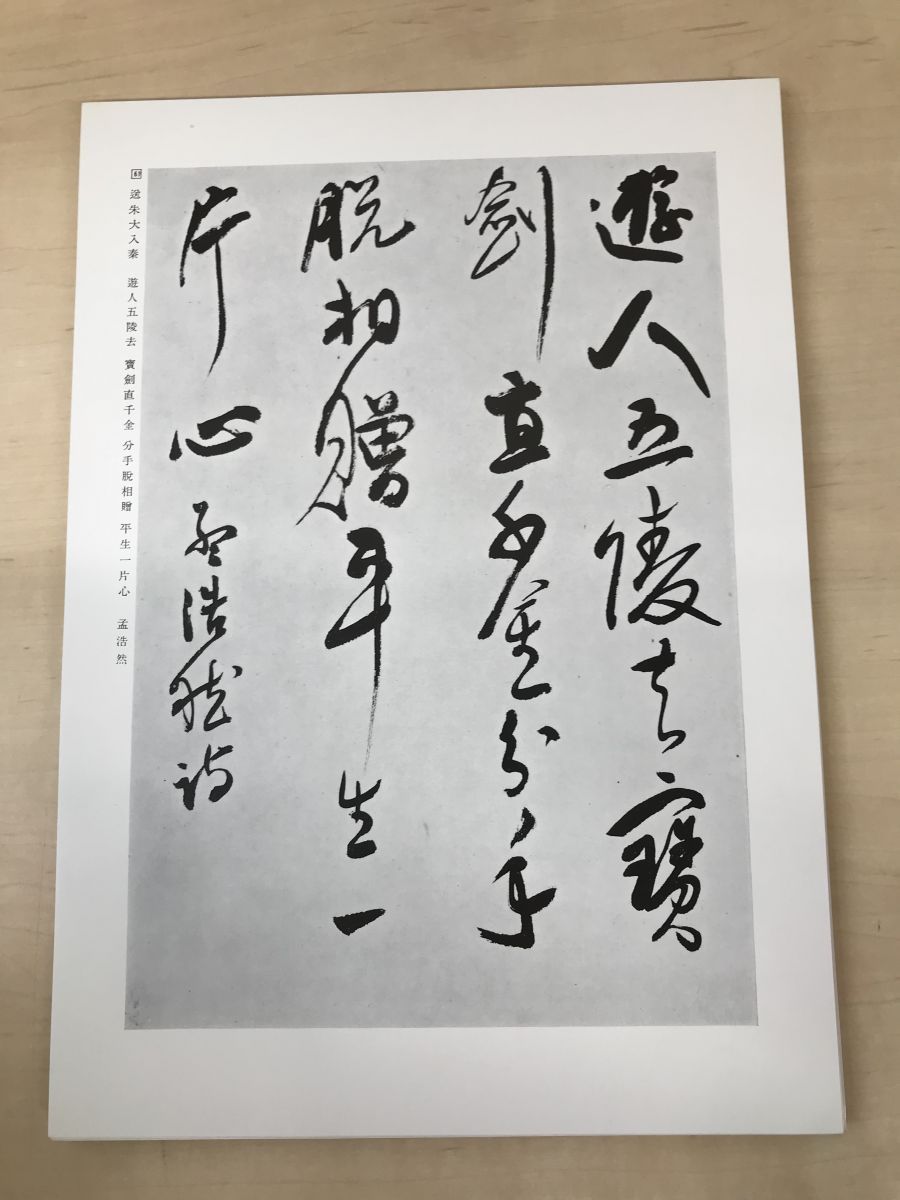 遊人五陵去寶
劍直千金分手
脱相贈平生一
片心孟浩然詩
送朱大入秦 遊人五陵去 寶劍直千金 分手脫相贈 平生一片心 孟浩然